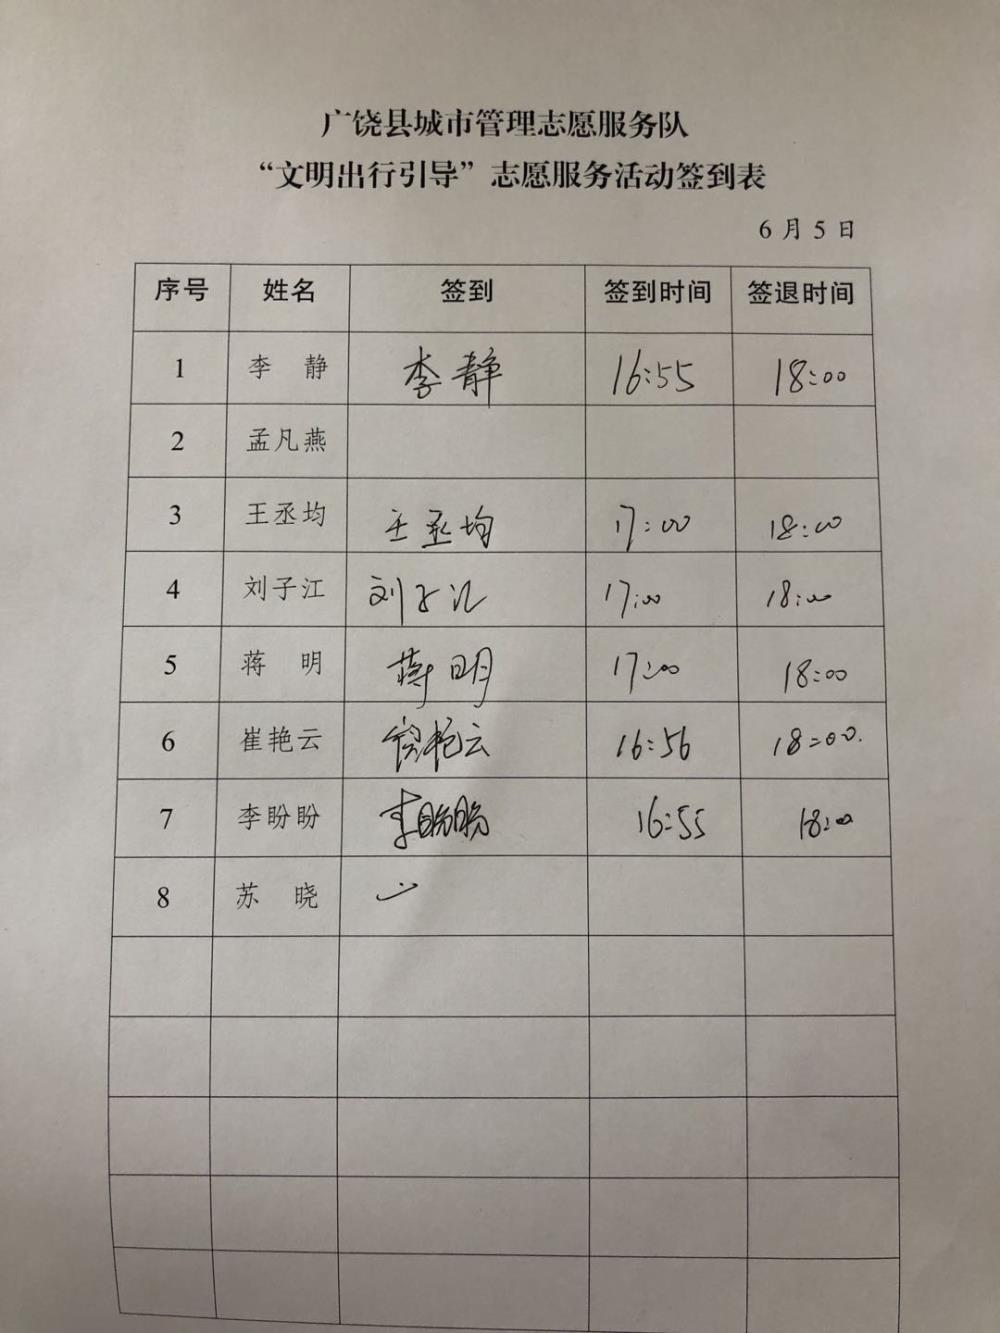 广饶县城市管理志愿服务队
“文明出行引导”志愿服务活动签到表
6 月 5 日
序号 姓名 签到 签到时间 签退时间
1 李 静 李静 16:55 18:00
2 孟凡燕
3 王丞均 王丞均 17:00 18:00
4 刘子江 刘子江 17:00 18:00
5 蒋 明 蒋明 17:00 18:00
6 崔艳云 崔艳云 16:56 18:00.
7 李盼盼 李盼盼 16:55 18:00
8 苏 晓